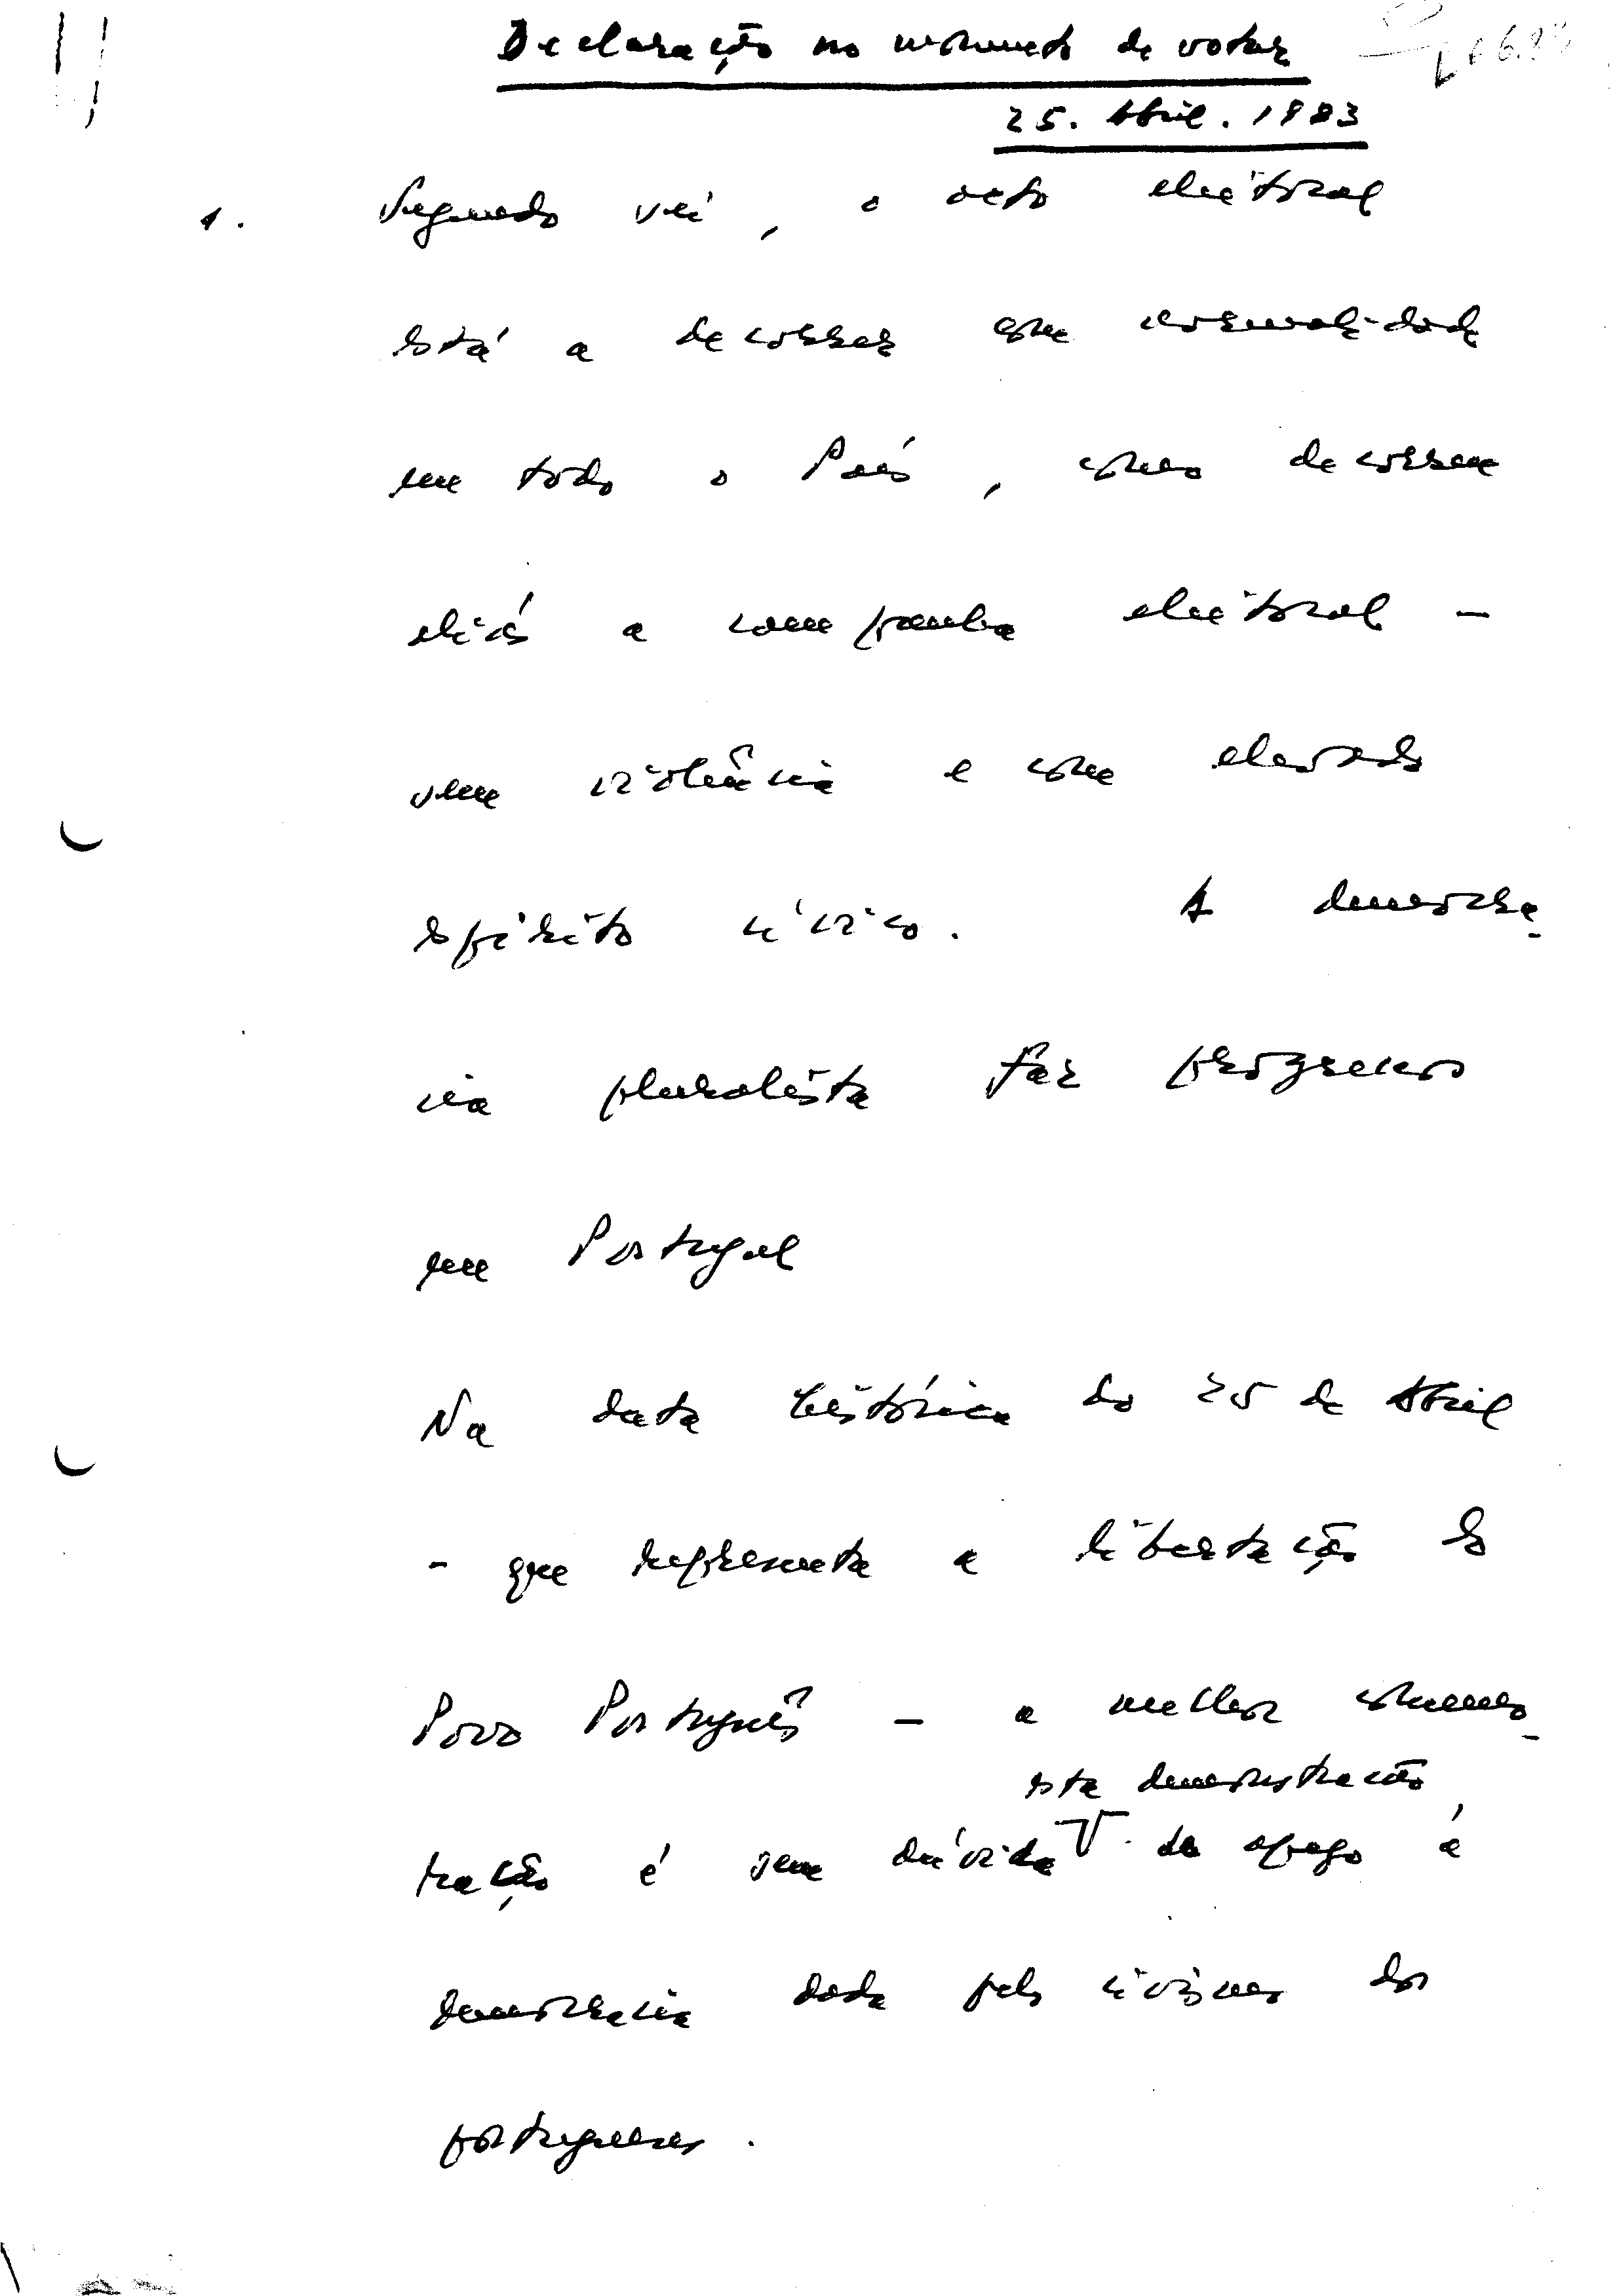 Declaração no momento de votar
25. Abril. 1983
1. Segundo sei, o acto eleitoral
está a decorrer com normalidade
em todo o País, como decorreu
aliás a campanha eleitoral -
sem violência e com elevado
espírito cívico. A democra-
cia pluralista fez progressos
em Portugal
Na data histórica do 25 de Abril
- que representa a libertação do
Povo Português - a melhor comemo-
esta demonstração
ração é sem dúvida de apego à
democracia dada pelo civismo dos
portugueses.